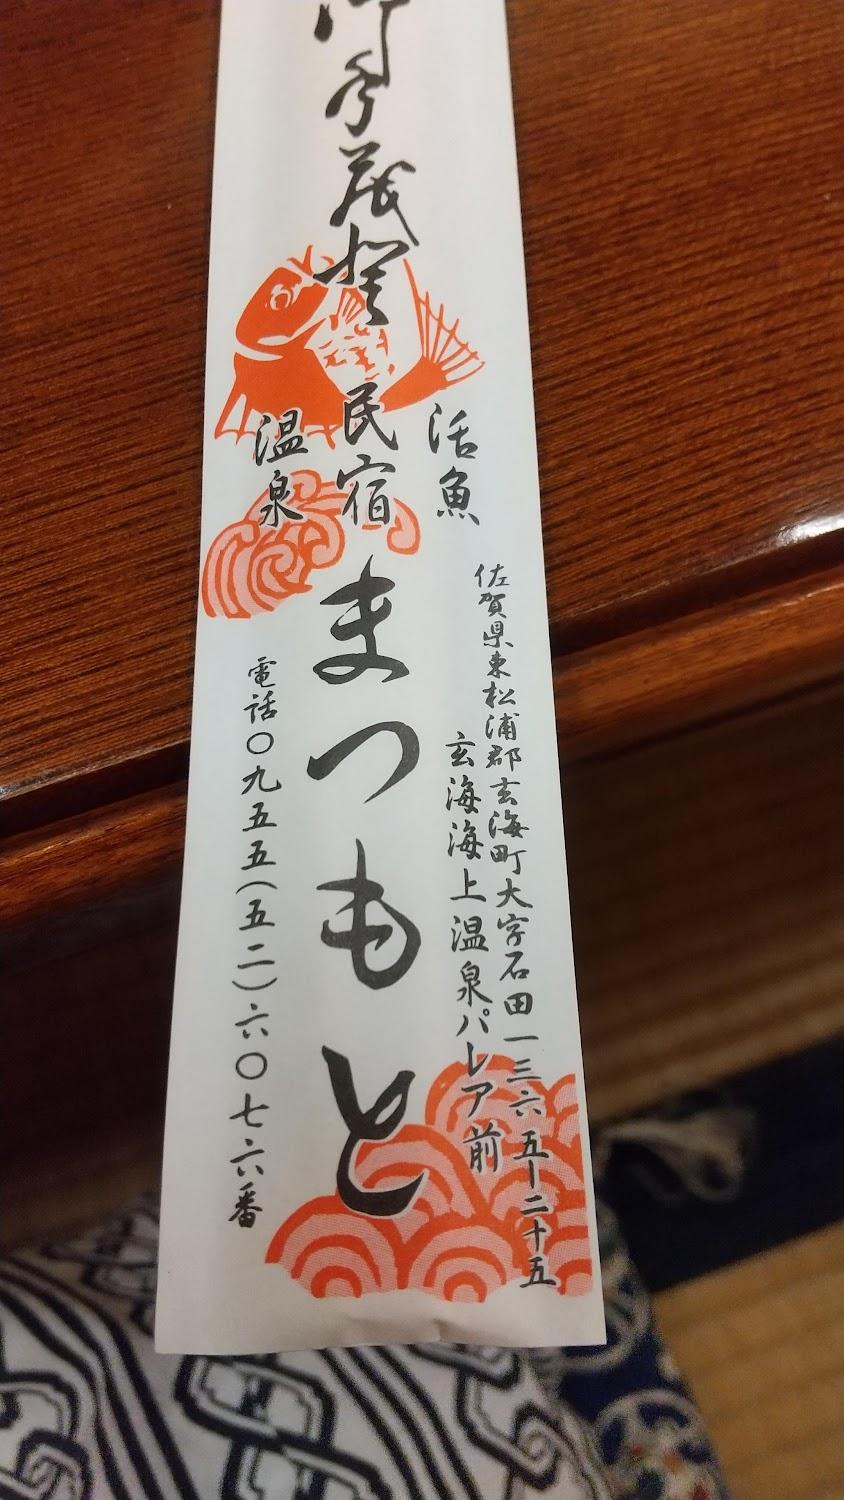 御手茂登
活魚
民宿
温泉
佐賀県東松浦郡玄海町大字石田一三六五ー二十五
玄海海上温泉パレア前
まつもと
電話〇九五五(五二)六〇七六番